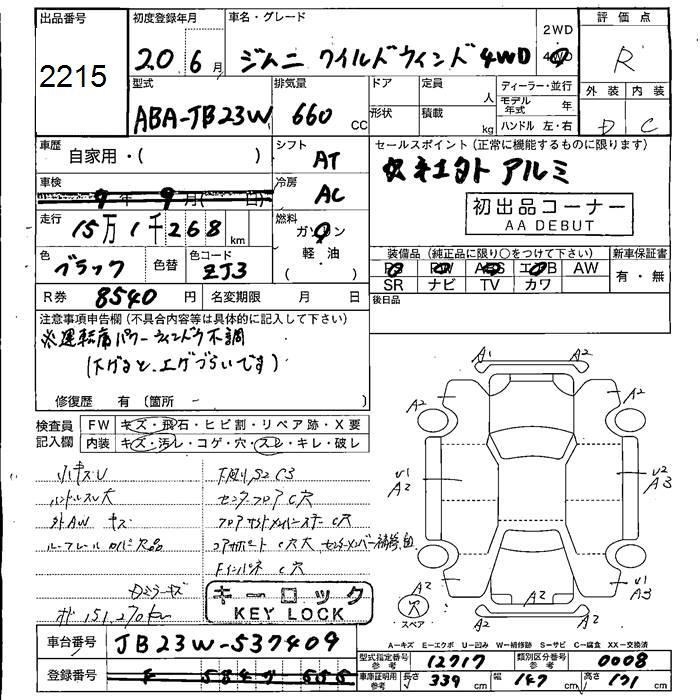 出品番号 初度登録年月 車名・グレード 評価点
2215 20 6月 ジムニ ワイルドウィンド 4WD 2WD 4WD R
外装 内装
D C
型式 排気量 ドア 定員 人 ディーラー・並行
ABA-JB23W 660 CC 形状 積載 kg モデル年式 年
ハンドル 左・右
車歴 自家用・( ) シフト AT セールスポイント(正常に機能するものに限ります)
アルミ
車検 9年9月( 日) 冷房 AC 初出品コーナー
AA DEBUT
走行 15万1千268 km 燃料 ガソリン
軽・油
( )
装備品(純正品に限り○をつけて下さい) 新車保証書
PS PW ABS エアB AW 有・無
SR ナビ TV カワ
色 ブラック 色替 色コード ZJ3
後日品
R券 8540円 名変期限 月 日
注意事項申告欄(不具合内容等は具体的に記入して下さい)
※運転席パワーウィンドウ不調
(下げると、上げづらいです)
修復歴 有(箇所 - )
検査員記入欄 FW キズ・飛石・ヒビ割・リペア跡・X要
内装 キズ・汚レ・コゲ・穴・スレ・キレ・破レ
小キズU 下廻りS2 C3
ハンドルスレ大 センターフロアC穴
外AW キズ フロアサイドメンバーステーC穴
ルーフレール 欠品 コアサポートC穴大 センターメンバー補修
FインパネC穴
Dミラーキズ
キーロック
KEY LOCK
メ 151,270km
A1 A2
A2 A2
U1 A2
U2 A3
A2 U1 A3
穴 スペア
A2 A2
車台番号 JB23W-537409
A-キズ E-エクボ U-凹み W-補修跡 S-サビ C-腐食 XX-交換済
型式指定番号 参考 12717 類別区分番号 参考 0008
登録番号
車庫証明用 参考 長さ 339 cm 幅 147 cm 高さ 171 cm